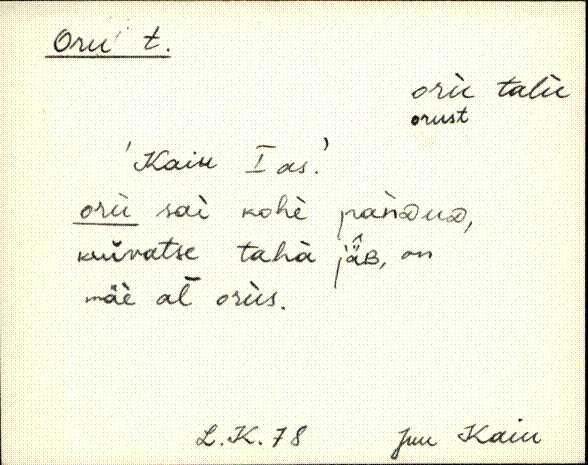 Oru t.
orù talù
orust
'Kaiu I as.'
orù saì kohè pànDuD,
kuìvatse tahà jä̂B, on
mäè al̄ orùs.
L.K. 78 Juu Kaiu